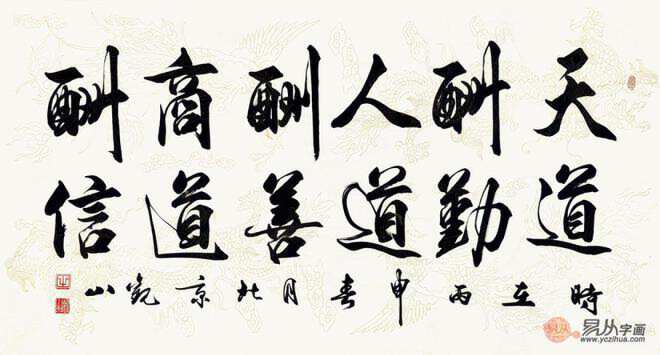 天道
酬勤
人道
酬善
商道
酬信
時在丙申春月北京觀山
易从字画
www.yczihua.com